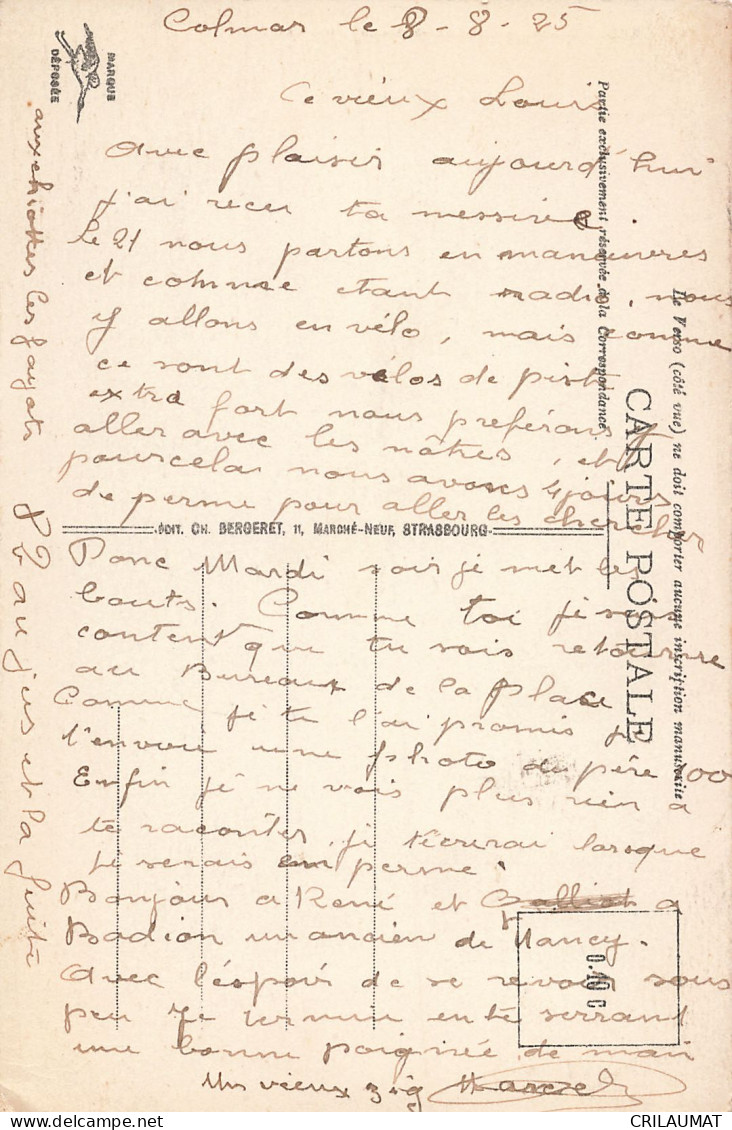 Colmar le 8-8-25
Ce vieux Louis
Avec plaisir aujourd'hui
j'ai recu ta
le 21 nous partons en manœuvres
et comme etant radio, nous
y allons en vélo, mais comme
ce sont des vélos de piste
extra fort nous preférons
aller avec les nôtres, et
pourcela nous avons 4 jours
de perme pour aller les chercher
Donc Mardi soir je met les
bouts. Comme toi je suis
content que tu sois retourné
au Bureau de la place
Comme je te l'ai promis je
t'envoi une photo du père 100
Enfin je ne vois plus rien a
te raconter, je t'écrirai lorsque
je serais en perme.
Bonjour a René et a
Badion un ancien de Nancy.
Avec l'éspoir de se revoir sous
peu je termine en te serrant
une bonne poignée de main
Un vieux zig Marcel
aux chiottes les fayots
au jus et la fuite
MARQUE
DÉPOSÉE
CARTE POSTALE
Le Verso (côté vue) ne doit comporter aucune inscription manuscrite
Partie exclusivement réservée à la Correspondance
ÉDIT. CH. BERGERET, 11, MARCHÉ-NEUF, STRASBOURG
0.40 c
CRILAUMAT